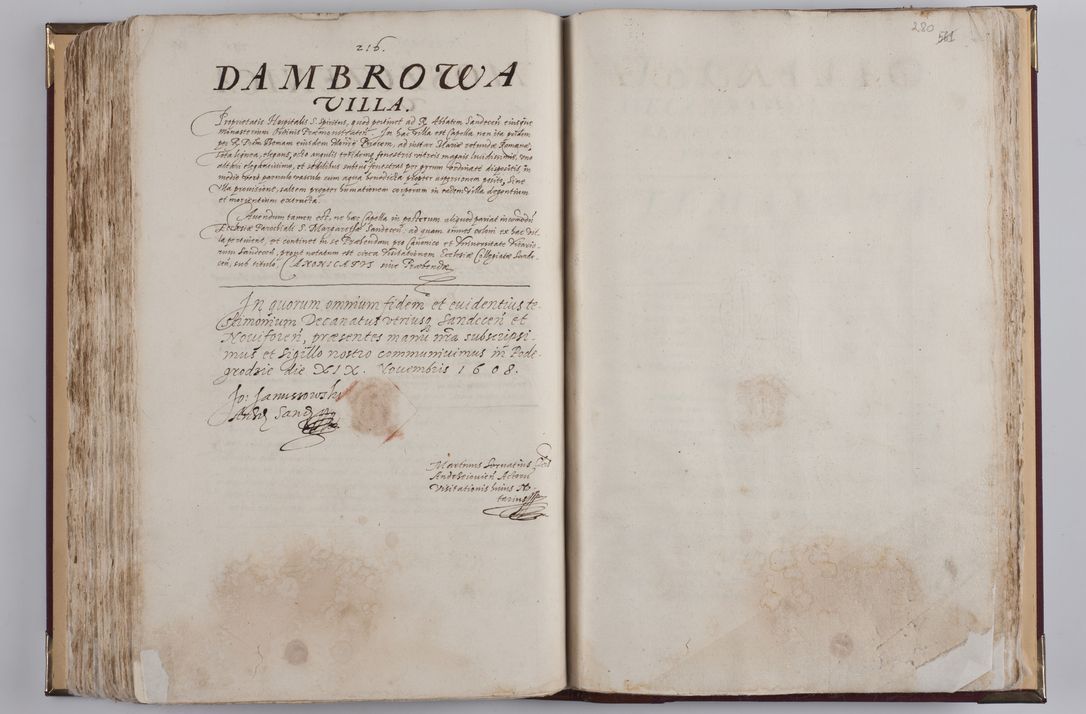 216.
DAMBROWA
VILLA.
Proprietatis Hospitalis S. Spiritus, quod pertinet ad R. Abbatem Sandecen̄ eiusque
Monasterium Ordinis Præmonstraten̄. In hac Villa est Capella non ita pridem
per R. Dnum eiusdem, ad instar Mariæ rotundæ Romanæ,
tota lignea, elegans, octo angulis totidemq fenestris vitreis magnis lucidissimis, Vno
altari elegantissimo, et sedilibus subtus fenestras per gyrum ordinate dispositis, in
medio vero paruulo vasculo cum aqua benedicta propter aspersionem posito, Sine
vlla prouisione, saltem propter humationem corporum in eadem Villa degentium
et morientium extructa.
Auendum tamen est, ne hæc Capella in posterum aliquod pariat incommodū
Ecclesiæ Parochiali S. Margarethæ Sandecen̄. ad quam omnes coloni ex hac Vil
la pertinent, et continet in se Præbendam pro Canonico et Vniuersitate Vicario-
rum Sandecen̄, prout notatum est circa Visitationem Ecclesiæ Collegiatæ Sande-
cen̄, sub titulo, CANONICATVS siue Præbendæ
In quorum omnium fidem et euidentius te-
stimonium Decanatus vtriusq Sandecen̄ et
Nouiforen̄, præsentes manu nr̄a subscripsi-
mus et Sigillo nostro communiuimus in Pode-
grodzie die XIX. Nouembris 1608.
Jo: Januszowski
Archi Sandz
Martinus
Andrzeiouien̄ Actorū
Visitationis huius No-
tarius
280
561